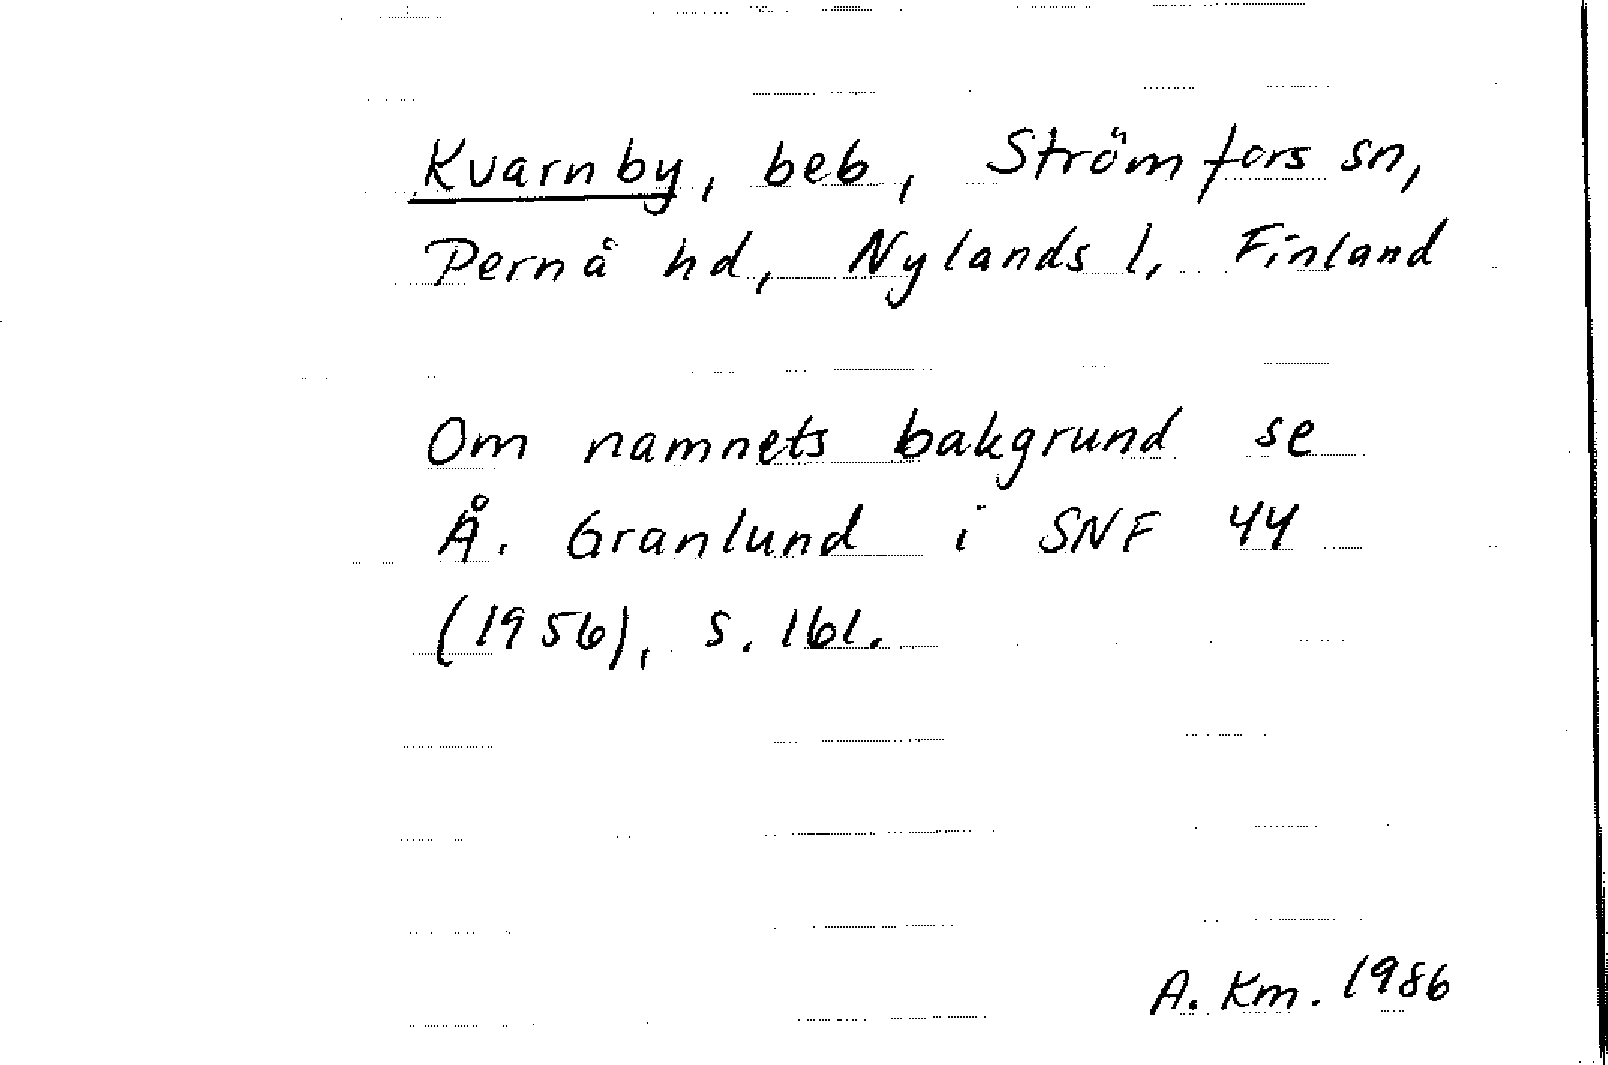 Kvarnby, beb, Strömfors sn,
Pernå hd, Nylands l, Finland
Om namnets bakgrund se
Å. Granlund i SNF 44
(1956), s. 161.
A. Km. 1986